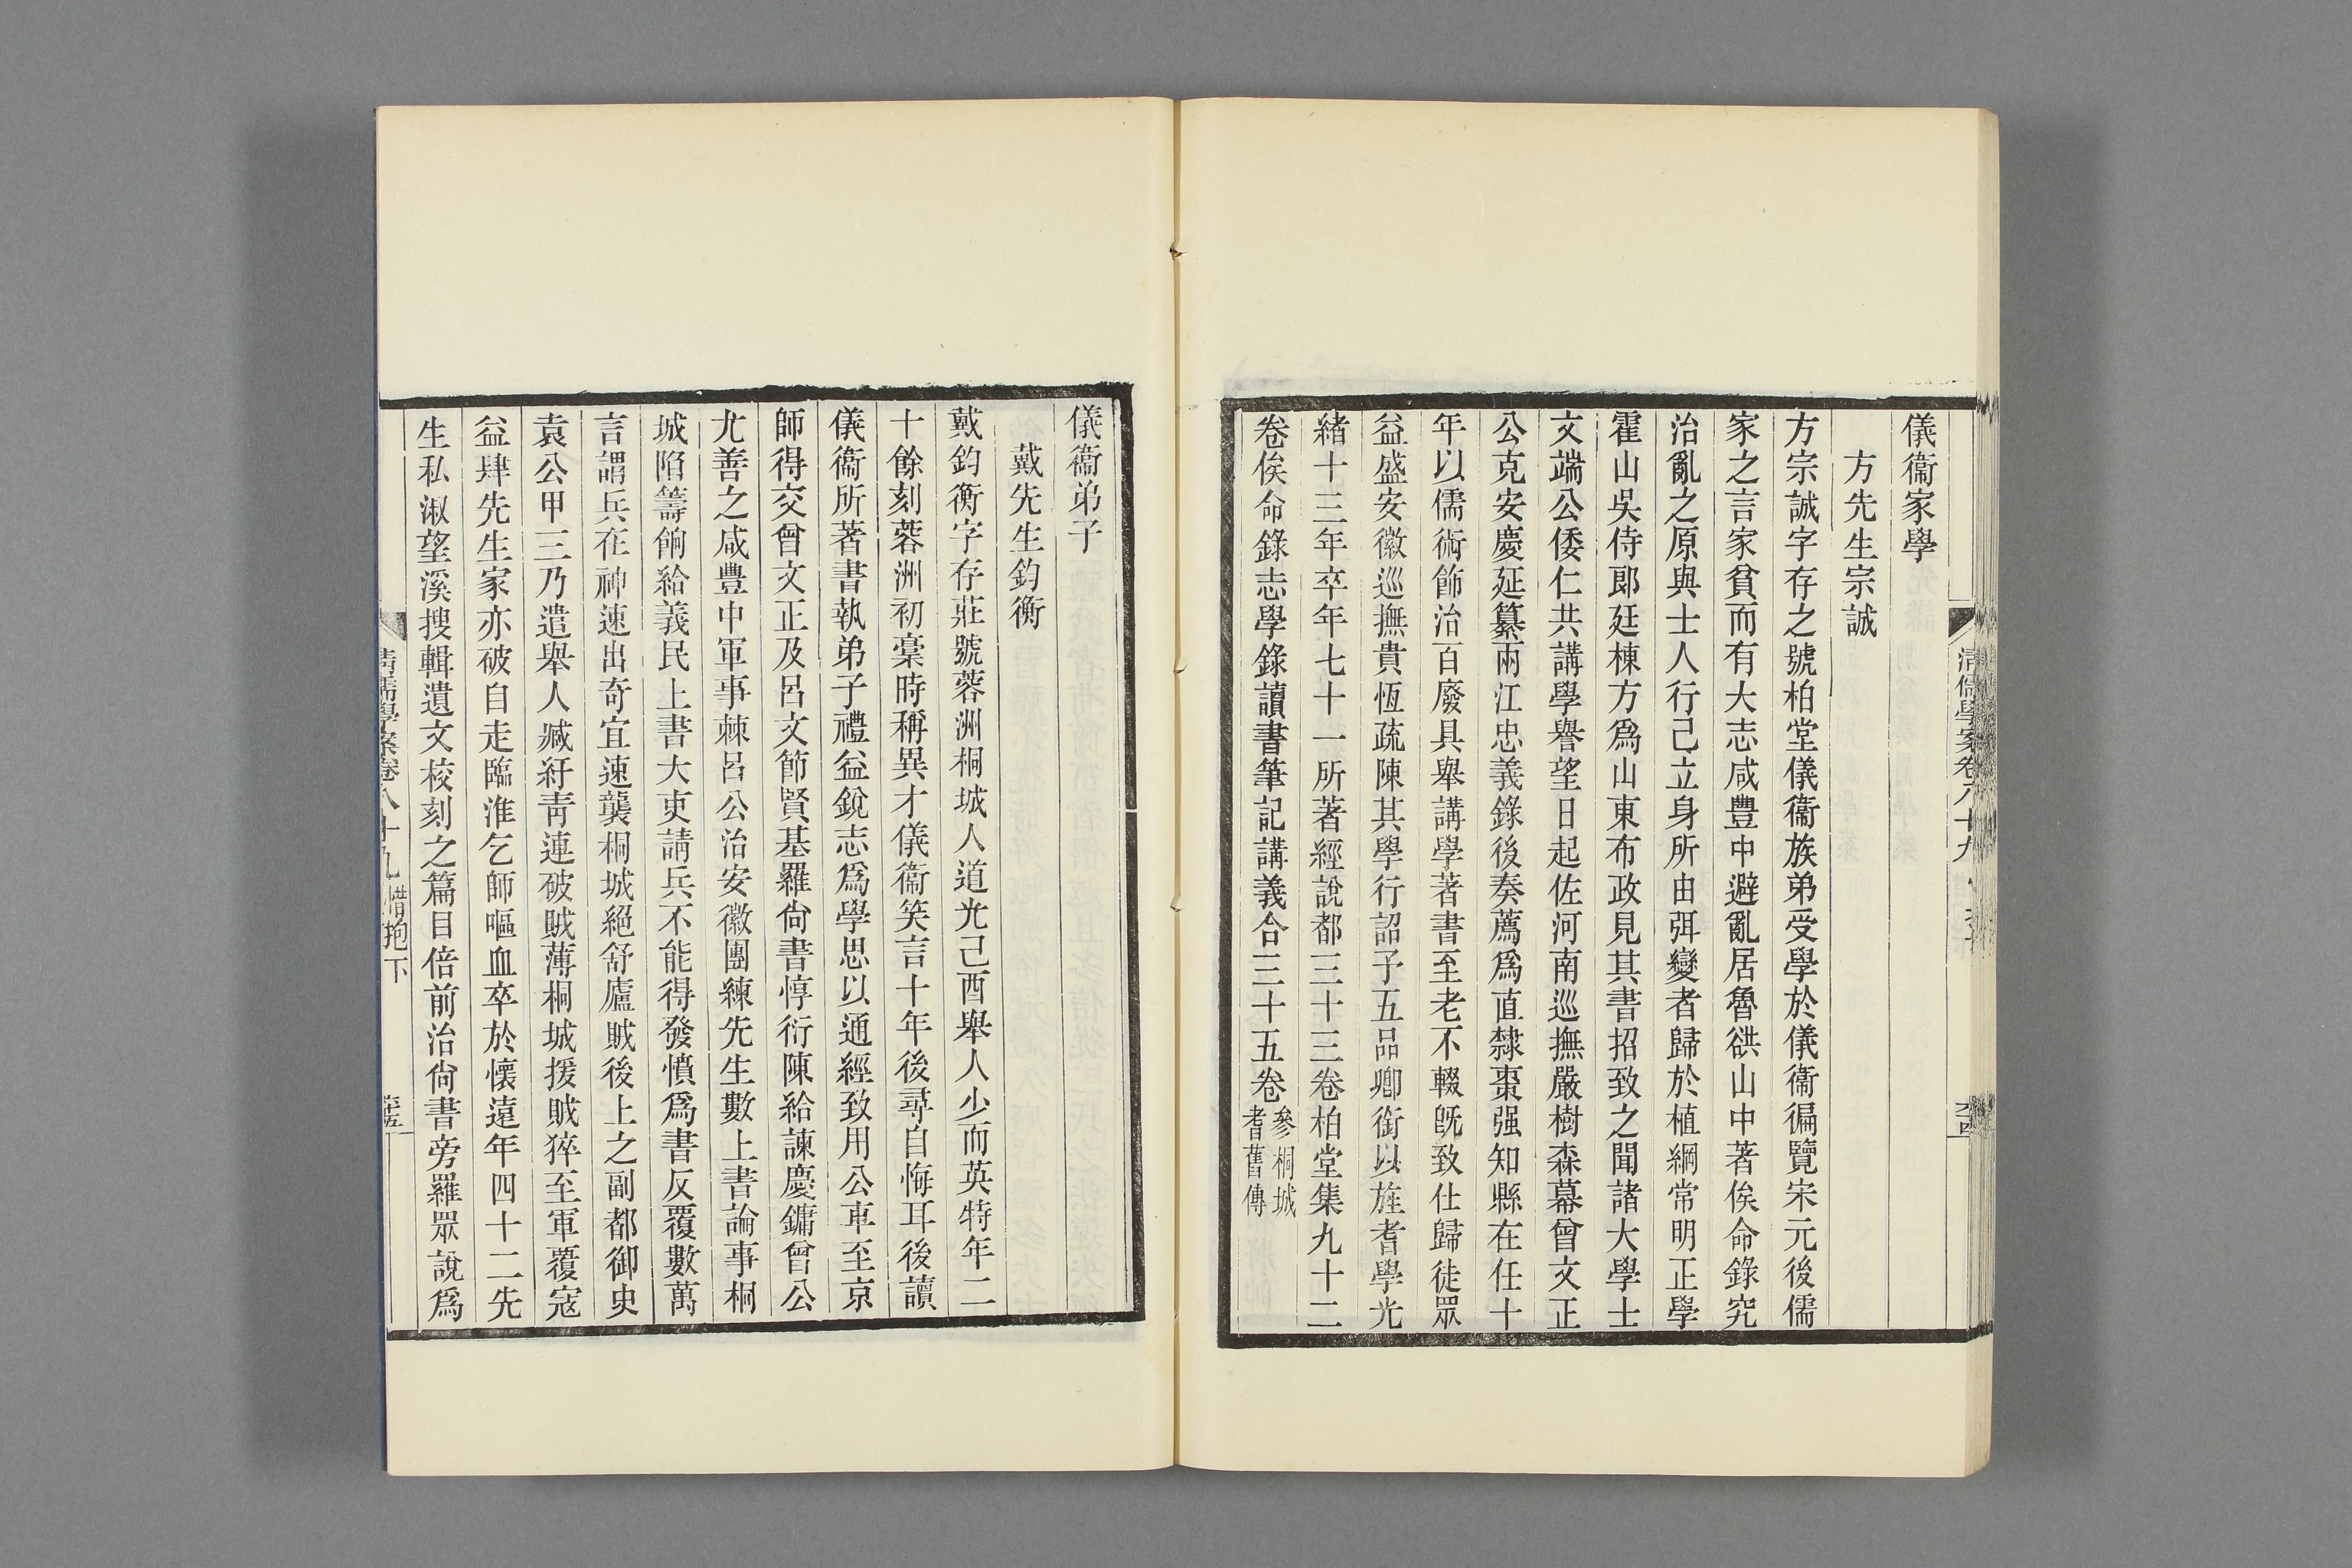 儀衞家學
方先生宗誠
方宗誠字存之號柏堂儀衞族弟受學於儀衞徧覽宋元後儒
家之言家貧而有大志咸豐中避亂居魯谼山中著俟命錄究
治亂之原與士人行己立身所由弭變者歸於植綱常明正學
霍山吳侍郞廷棟方爲山東布政見其書招致之聞諸大學士
文端公倭仁共講學譽望日起佐河南巡撫嚴樹森幕曾文正
公克安慶延纂兩江忠義錄後奏薦爲直隸棗强知縣在任十
年以儒術飾治百廢具舉講學著書至老不輟旣致仕歸徒眾
益盛安徽巡撫貴恆疏陳其學行詔予五品卿銜以旌耆學光
緒十三年卒年七十一所著經說都三十三卷柏堂集九十二
卷俟命錄志學錄讀書筆記講義合三十五卷參桐城
耆舊傳
儀衞弟子
戴先生鈞衡
戴鈞衡字存莊號蓉洲桐城人道光己酉舉人少而英特年二
十餘刻蓉洲初稾時稱異才儀衞笑言十年後尋自悔耳後讀
儀衞所著書執弟子禮益銳志爲學思以通經致用公車至京
師得交曾文正及呂文節賢基羅尙書惇衍陳給諫慶鏞曾公
尤善之咸豐中軍事棘呂公治安徽團練先生數上書論事桐
城陷籌餉給義民上書大吏請兵不能得發憤爲書反覆數萬
言謂兵在神速出奇宜速襲桐城絕舒廬賊後上之副都御史
袁公甲三乃遣舉人臧紆靑連破賊薄桐城援賊猝至軍覆寇
益肆先生家亦破自走臨淮乞師嘔血卒於懷遠年四十二先
生私淑望溪搜輯遺文校刻之篇目倍前治尙書旁羅眾說爲
清儒學案卷八十九 惜抱下